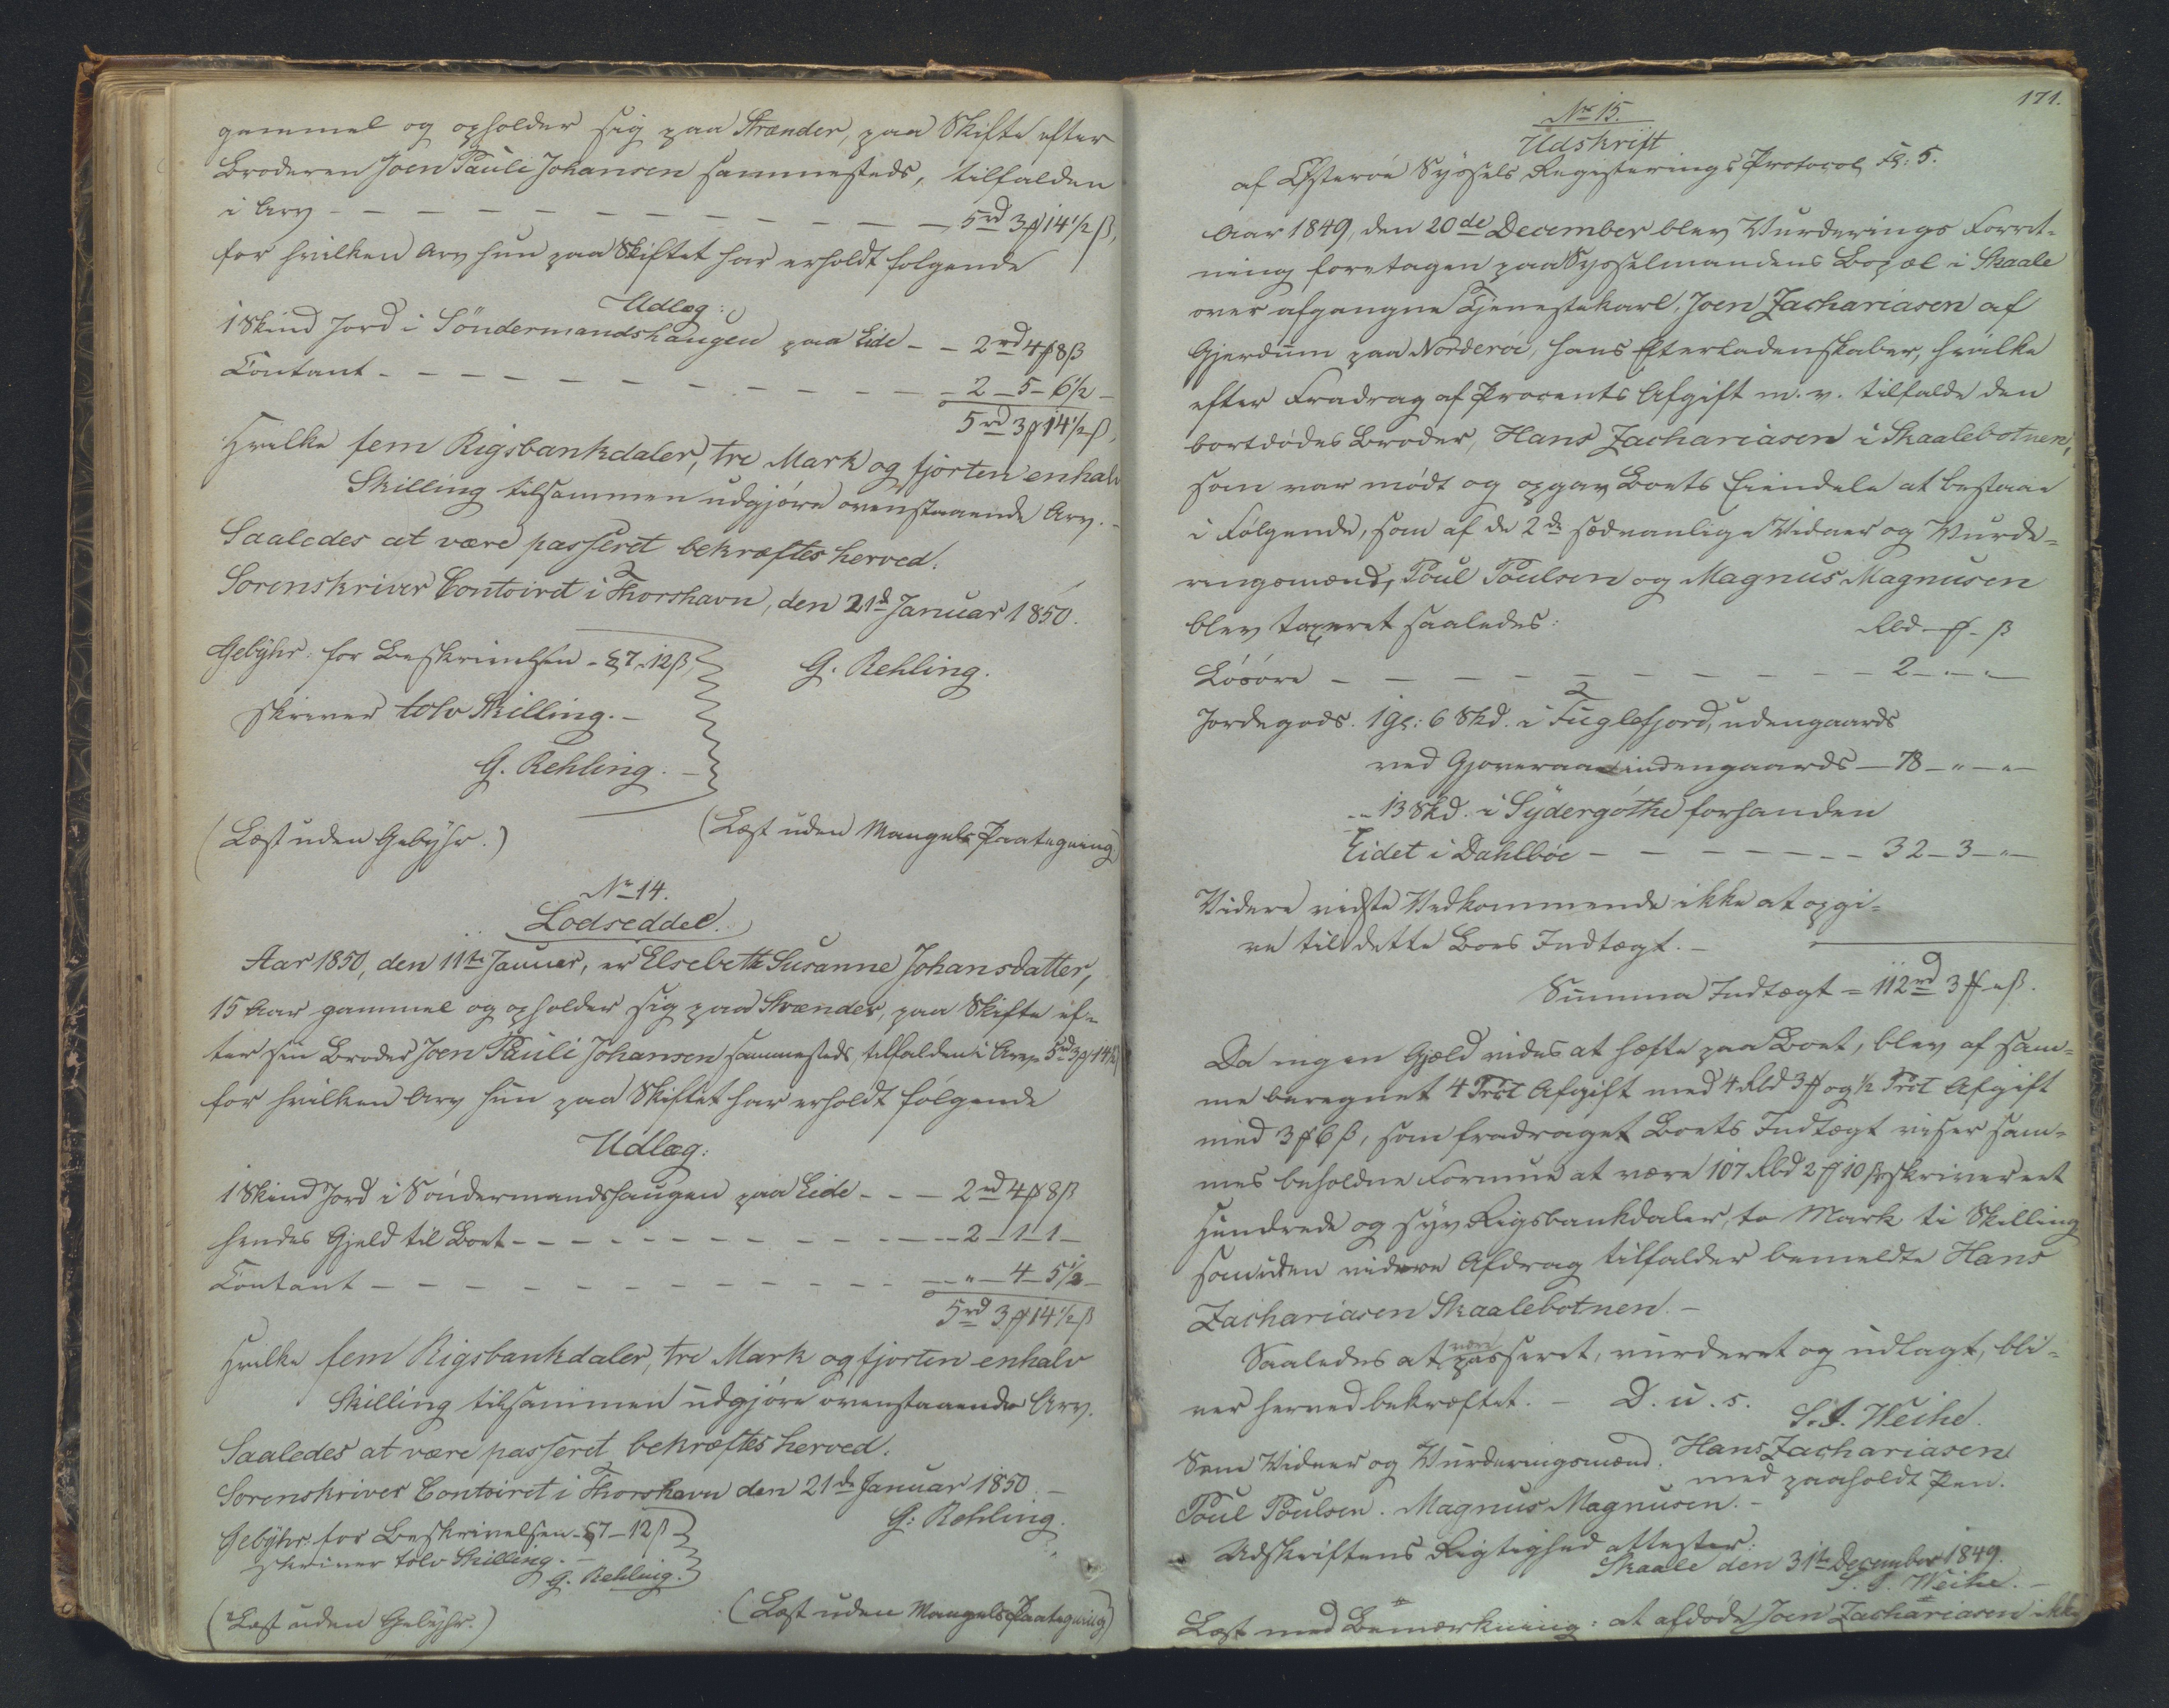 gammel og opholder sig paa Strænder, paa Skifte efter
Broderen Joen Pauli Johansen sammesteds, tilfalden
i Arv - - - - - - - - - - - - 5rd 3 ℳ 14 1/2 ß,
for hvilken Arv hun paa Skiftet har erholdt følgende
Udlæg:
1 Skind Jord i Söndermandshaugen paa Eide - - 2rd 4 ℳ 8 ß
Contant - - - - - - - - - - - 2 - 5 - 6 1/2 -
5rd 3 ℳ 14 1/2 ß,
Hvilke fem Rigsbankdaler, tre Mark og fjorten enhalv
Skilling tilsammen udgjøre ovenstaaende Arv. -
Saaledes at være passeret bekræftes herved.
Sorenskriver Contoiret i Thorshavn, den 21de Januar 1850.
Gebÿhr: for Beskrivelsen - §7 - 12 ß
G. Rehling.
skriver tolv Skilling. -
G. Rehling. -
(Læst uden Gebÿhr.)
(Læst uden Mangels Paategning)
No 14.
Lodseddel.
Aar 1850, den 11te Januar, er Elsebeth Susanne Johansdatter,
15 Aar gammel og opholder sig paa Strænder, paa Skifte ef-
ter sin Broder Joen Pauli Johansen sammesteds, tilfalden i Arv 5rd 3 ℳ 14 1/2
for hvilken Arv hun paa Skiftet har erholdt følgende
Udlæg:
1 Skind Jord i Söndermandshaugen paa Eide - - - 2rd 4 ℳ 8 ß
hendes Gjeld til Boet - - - - - - - - - - 2 - 1 - 1 -
Contant - - - - - - - - - - - " - 4 - 5 1/2 -
5rd 3 ℳ 14 1/2 ß
Hvilke fem Rigsbankdaler, tre Mark og fjorten enhalv
Skilling tilsammen udgjøre ovenstaaende Arv.
Saaledes at være passeret bekræftes herved.
Sorenskriver Contoiret i Thorshavn den 21de Januar 1850. -
Gebÿhr: for Beskrivelsen - §7 - 12 ß -
G. Rehling.
skriver tolv Skilling. -
G. Rehling.
(Læst uden Gebÿhr.)
(Læst uden Mangels Paategning)
171.
No 15.
Udskrift
af Østerøe Syssels Registerings Protocol Fl: 5.
Aar 1849, den 20de December blev Vurderings Forret-
ning foretagen paa Sysselmandens Bopæl i Skaale
over afgangne Tjenestekarl, Joen Zachariasen af
Gjerdum paa Norderøe, hans Efterladenskaber, hvilke
efter Fradrag af Procents Afgift m. v. tilfalde den
bortdødes Broder, Hans Zachariasen i Skaalebotnen,
som var mødt og opgav Boets Eiendele at bestaae
i Følgende, som af de 2de sædvanlige Vidner og Vurde-
ringsmænd, Poul Poulsen og Magnus Magnusen
blev taxeret saaledes:
Rbd - ℳ - ß
Løsøre - - - - - - - - - - 2 - " - " -
Jordegods. 1 Gl: 6 Skd. i Fuglefjord, udengaards
ved Gjoveraa indengaards - 78 - " - " -
" - 13 Skd. i Sÿdergöthe forhanden
Eidet i Dahlböe - - - - - - - 32 - 3 - " -
Videre vidste Vedkommende ikke at opgi-
ve til dette Boes Indtægt. -
Summa Indtægt = 112rd 3 ℳ " ß.
Da ingen Gjæld vides at hæfte paa Boet, blev af sam-
me beregnet 4 Prct Afgift med 4 Rbd 3 ℳ og 1/2 Prct Afgift
med 3 ℳ 6 ß, som fradraget Boets Indtægt viser sam-
mes beholdne Formue at være 107 Rbd 2 ℳ 10 ß, skriver et
Hundrede og syv Rigsbankdaler, to Mark ti Skilling
som uden videre Afdrag tilfalder bemeldte Hans
Zachariasen Skaalebotnen. -
Saaledes at være passeret, vurderet og udlagt, bli-
ver herved bekræftet. - D. u. s.
S. I. Weihe.
Som Vidner og Vurderingsmænd.
Hans Zachariasen
med paaholdt Pen.
Poul Poulsen. Magnus Magnusen. -
Udskriftens Rigtighed attester:
Skaale den 31te December 1849.
S. I. Weihe. -
Læst med Bemærkning: at afdøde Joen Zachariasen ikke